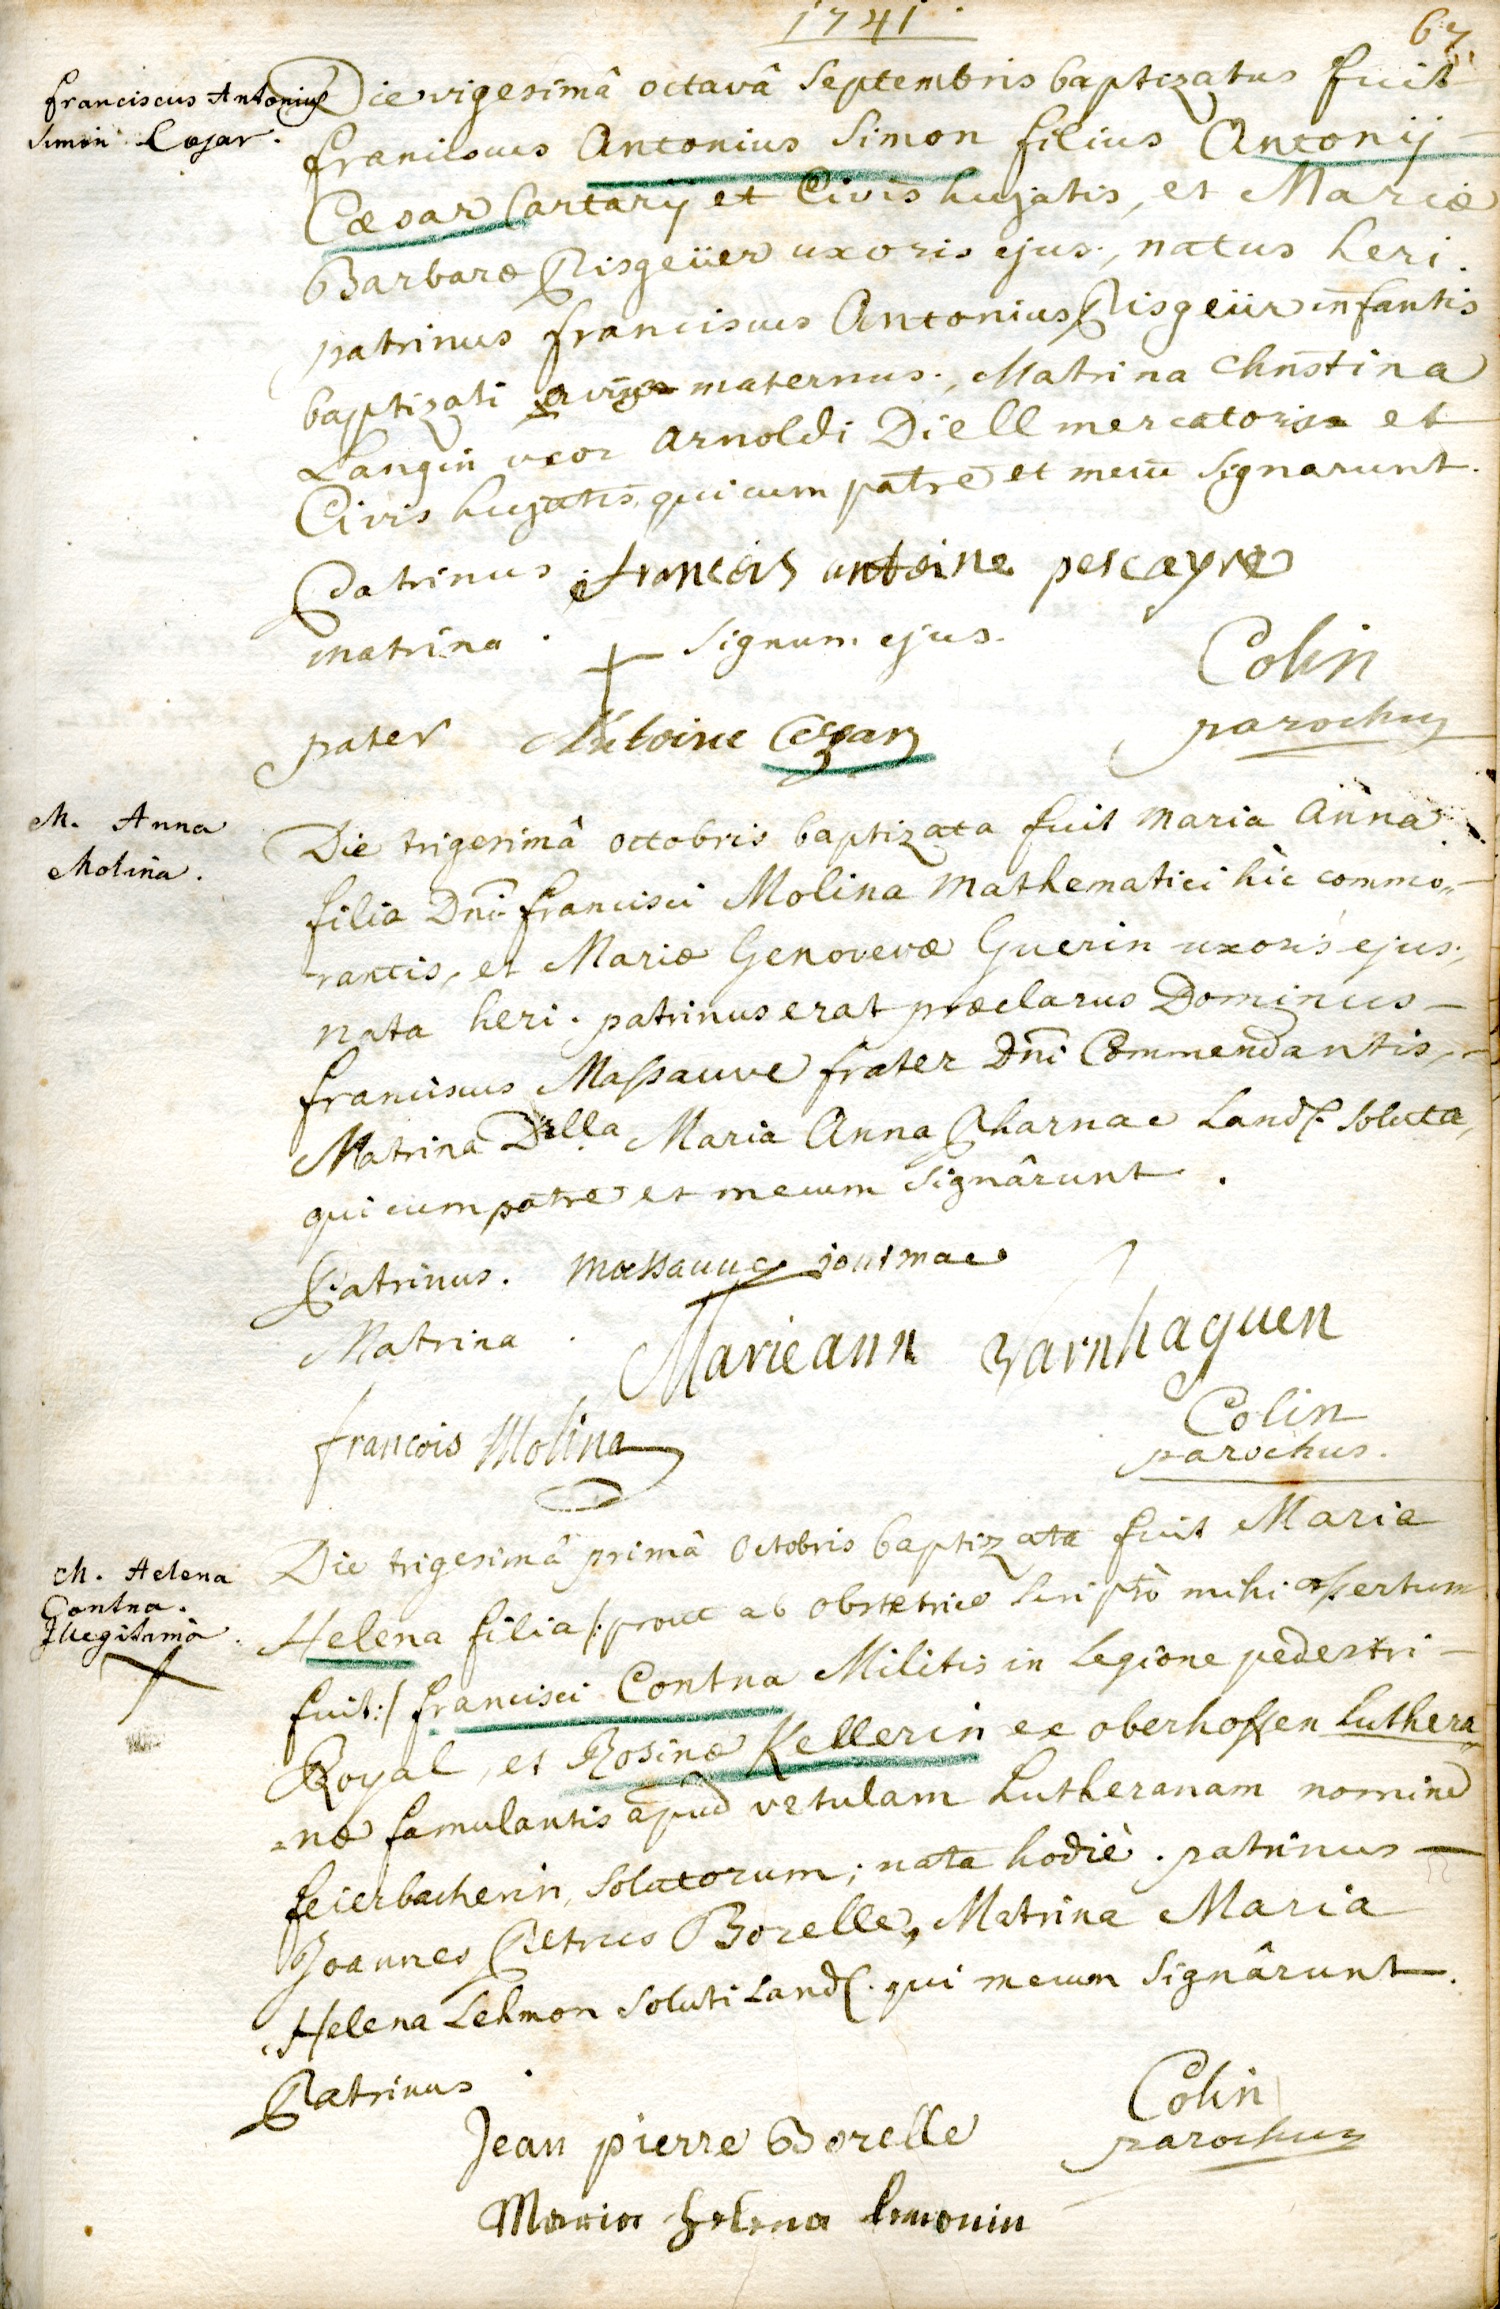 1741.
67.
Franciscus Antonius
Simon Cesar.
Die vigesimâ octavâ Septembris baptizatus fuit
franciscus Antonius Simon filius Antonij
Cæsar Cartarij et Civis hujatis, et Mariæ
Barbaræ Pisgeüer uxoris ejus, natus heri.
patrinus franciscus Antonius Pisgeiir infantis
baptizati maternus, Matrina Christina
Langin uxor Arnoldi Diell mercatoris et
Civis hujatis, qui cum patre et mecū signarunt.
Patrinus francois antoine pescayre
matrina. + signum ejus.
Colin
parochus
pater Antoine Cezar
M. Anna
Molina.
Die trigesimâ octobris baptizata fuit Maria Anna
filia Dni francisci Molina Mathematici hic commo-
rantis, et Mariæ Genovevæ Guerin uxoris ejus,
nata heri. patrinus erat præclarus Dominus
franciscus Massauve frater Dni Commendantis,
Matrina Dlla Maria Anna Pharnae Land. Soluta,
qui cum patre et mecum signârunt.
Patrinus. massauve
Matrina. Marieann varnhaguen
francois Molina
Colin
parochus.
M. Helena
Contna.
Illegitima.
Die trigesimâ primâ Octobris baptizata fuit Maria
Helena filia /: prout ab obstetrice scripto mihi assertum
fuit :/ francisci Contna Militis in Legione pedestri
Royal, et Rosinæ Kellerin ex oberhoffen Luthera-
næ famulantis apud vetulam Lutheranam nomine
feierbacherin, solutorum; nata hodiè. patrinus
Joannes Petrus Borelle, Matrina Maria
Helena Lehmon soluti Land. qui mecum signârunt.
Patrinus.
Jean pierre Borelle
Colin
parochus
Maria helena lemonin